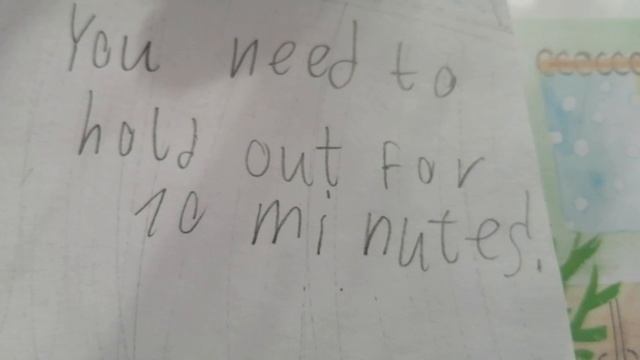 You need to
hold out for
10 minutes!